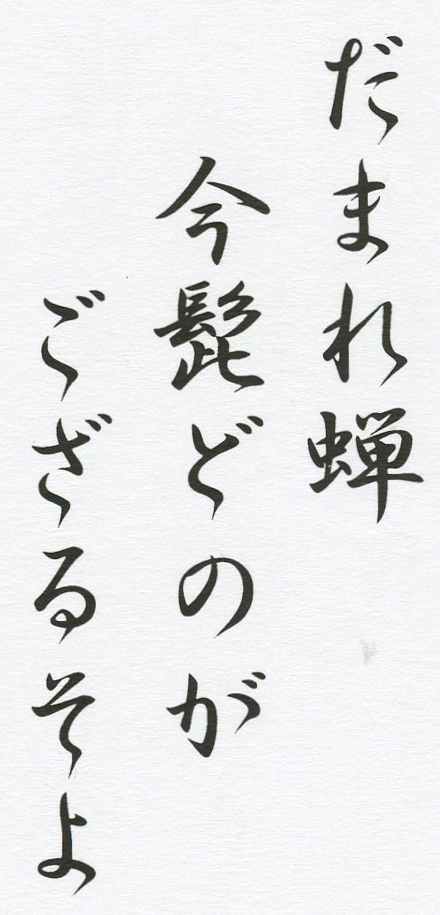 だまれ蝉
今髭どのが
ござるそよ